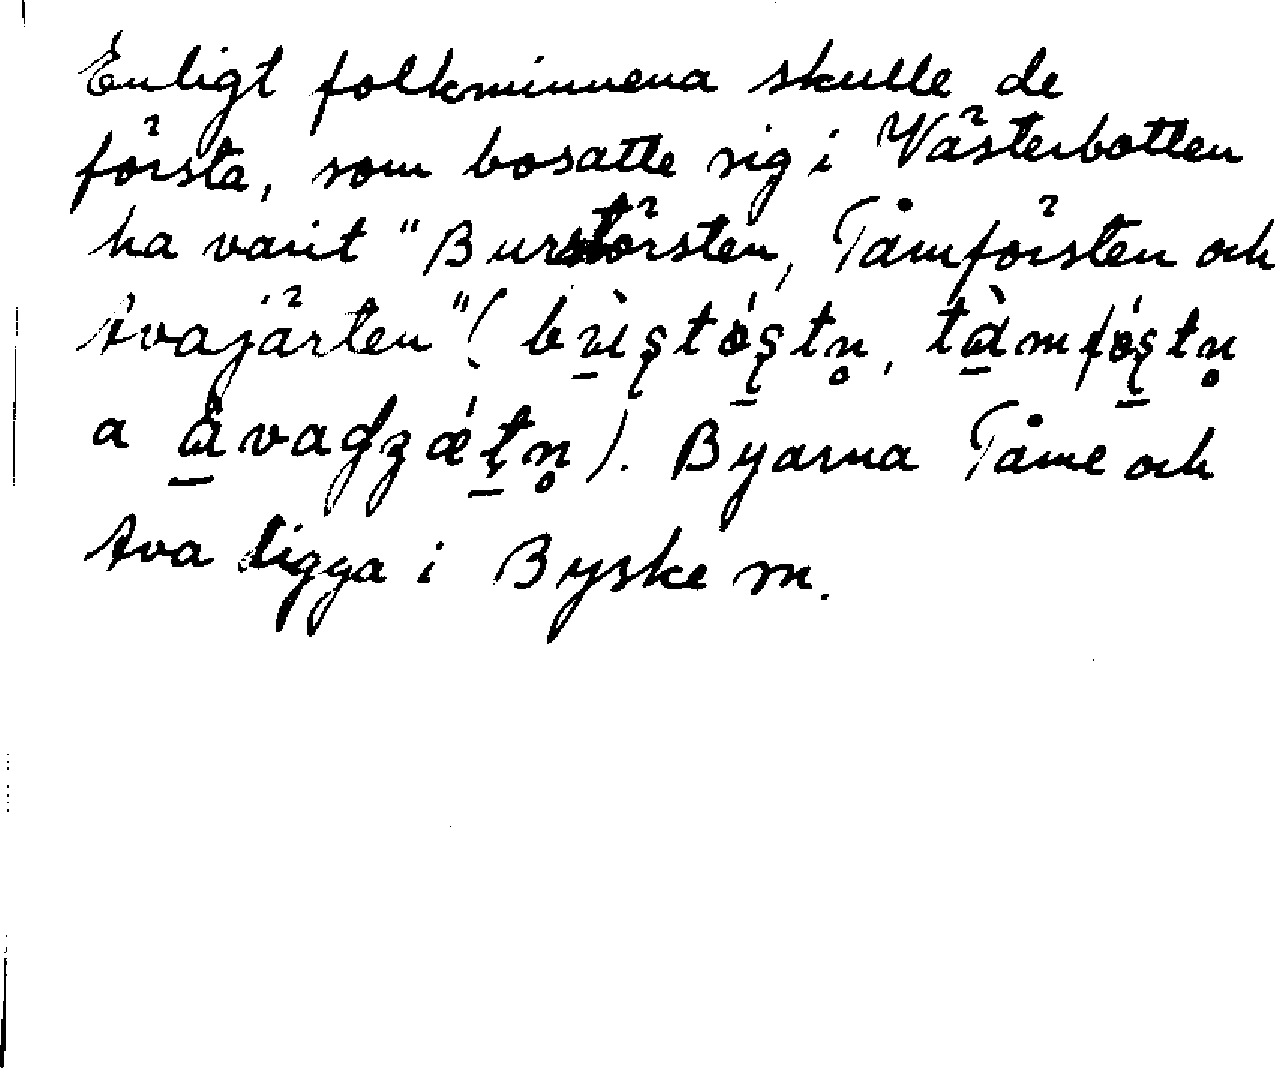 Enligt folkminnena skulle de
första, som bosatte sig i Västerbotten
ha varit "Burstörsten, Tåmförsten och
Avajärten" (bùştǿştn̥, tàmfǿştn̥
a àvaʤǽţn̥). Byarna Tåme och
Ava ligga i Byske sn.